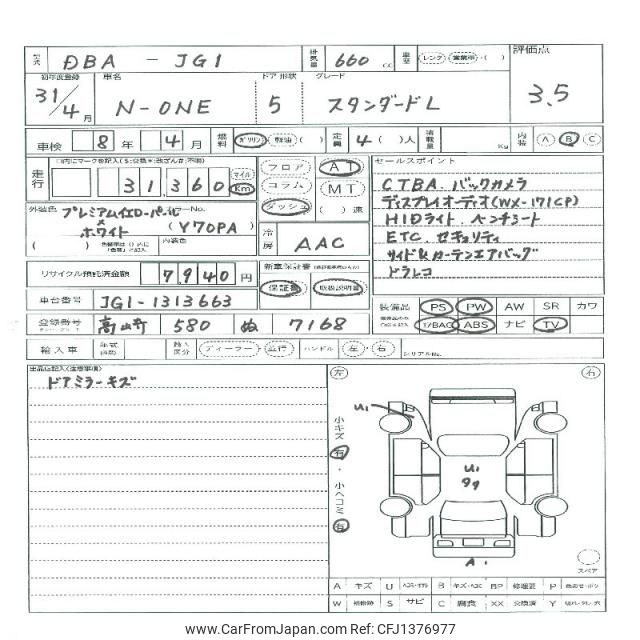 型式 DBA - JG1 排気量 660 cc 車歴 レンタ・営業車・( ) 評価点
初年度登録 車名 ドア 形状 グレード
31/4月 N-ONE 5 スタンダードL 3.5
車検 8年 4月 燃料 ガソリン 軽油 ( ) 定員 4( )人 積載量 Kg 内装 A B C
走行 31,360 マイル Km フロア コラム ダッシュ AT MT ( )速 セールスポイント
CTBA. バックカメラ
ディスプレイオーディオ(WX-171CP)
HIDライト. ベンチシート
ETC. セキュリティ
サイド&カーテンエアバッグ
ドラレコ
外装色 プレミアムイエロー・パールII カラーNo.
× ホワイト (Y70PA)
( ) 内装色
冷房 AAC
リサイクル預託済金額 7,940円 新車保証書 保証書 取扱説明書
車台番号 JG1-1313663
装備品 PS PW AW SR カワ
エアBAG ABS ナビ TV
登録番号 580 ぬ 7168
輸入車 年式 輸入区分 ディーラー・並行 ハンドル 左・右 シリアルNo.
出品店記入(注意事項)
ドアミラーキズ
左 右
小キズ 有・小ヘコミ 有
U1
U1
99
A1
スペア
A キズ U B BP 修理要 P
W 補修跡 S サビ C 腐食 XX 交換済 Y
www.CarFromJapan.com CFJ1376977